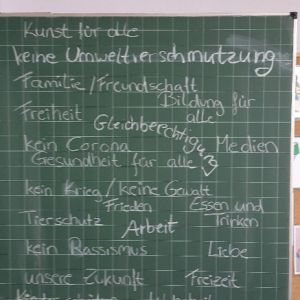 Kunst für alle
keine Umweltverschmutzung
Familie/Freundschaft
Bildung für alle
Freiheit
Gleichberechtigung
kein Corona
Medien
Gesundheit für alle
kein Krieg/keine Gewalt
Frieden
Essen und Trinken
Tierschutz
Arbeit
kein Rassismus
Liebe
unsere Zukunft
Freizeit